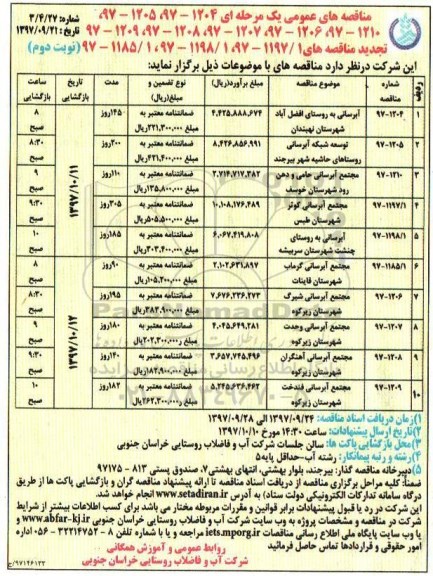 مناقصه های عمومی یک مرحله ای ۱۲۰۴-۹۷، ۱۲۰۵-۹۷،
۱۲۱۰-۹۷، ۱۲۰۶-۹۷، ۱۲۰۷-۹۷، ۱۲۰۸-۹۷، ۱۲۰۹-۹۷
تجدید مناقصه های ۱/۱۱۹۷-۹۷، ۱/۱۱۹۸-۹۷ و ۱/۱۱۸۵-۹۷ (نوبت دوم)
شماره: ۳/۴/۲۷
تاریخ: ۱۳۹۷/۰۹/۲۱
این شرکت درنظر دارد مناقصه های با موضوعات ذیل برگزار نماید:
ردیف شماره مناقصه موضوع مناقصه مبلغ برآورد(ریال) نوع تضمین و مبلغ(ریال) مدت تاریخ بازگشایی ساعت بازگشایی
۱ ۹۷-۱۲۰۴ آبرسانی به روستای افضل آباد شهرستان نهبندان ۴,۴۲۵,۸۸۸,۶۷۴ ضمانتنامه معتبر به مبلغ ۲۲۱,۳۰۰,۰۰۰ریال ۱۴۵روز ۱۳۹۷/۱۰/۱۱ ۸ صبح
۲ ۹۷-۱۲۰۵ توسعه شبکه آبرسانی روستاهای حاشیه شهر بیرجند ۸,۴۲۶,۸۵۶,۹۹۱ ضمانتنامه معتبر به مبلغ ۴۲۱,۴۰۰,۰۰۰ریال ۲۰۰روز ۸:۳۰ صبح
۳ ۹۷-۱۲۱۰ مجتمع آبرسانی حامی و دهن رود شهرستان خوسف ۲,۷۱۴,۷۱۷,۳۸۲ ضمانتنامه معتبر به مبلغ ۱۳۵,۸۰۰,۰۰۰ریال ۱۱۰روز ۹ صبح
۴ ۹۷-۱۱۹۷/۱ مجتمع آبرسانی کوثر شهرستان طبس ۱۰,۱۰۸,۱۷۶,۴۸۹ ضمانتنامه معتبر به مبلغ ۵۰۵,۵۰۰,۰۰۰ریال ۳۰۵روز ۹:۳۰ صبح
۵ ۹۷-۱۱۹۸/۱ آبرسانی به روستای چنشت شهرستان سربیشه ۶,۰۶۷,۴۱۹,۸۰۸ ضمانتنامه معتبر به مبلغ ۳۰۳,۴۰۰,۰۰۰ریال ۱۸۵روز ۱۰ صبح
۶ ۹۷-۱۱۸۵/۱ مجتمع آبرسانی گرماب شهرستان قاینات ۲,۱۰۲,۶۳۱,۸۹۷ ضمانتنامه معتبر به مبلغ ۱۰۵,۲۰۰,۰۰۰ریال ۹۰روز ۱۳۹۷/۱۰/۱۲ ۸ صبح
۷ ۹۷-۱۲۰۶ مجتمع آبرسانی شیرگ شهرستان زیرکوه ۷,۶۷۶,۲۳۶,۲۷۳ ضمانتنامه معتبر به مبلغ ۳۸۳,۹۰۰,۰۰۰ریال ۱۹۵روز ۸:۳۰ صبح
۸ ۹۷-۱۲۰۷ مجتمع آبرسانی وحدت شهرستان زیرکوه ۴,۰۴۵,۶۴۹,۲۸۱ ضمانتنامه معتبر به مبلغ ۲۰۲,۳۰۰,۰۰۰ریال ۱۸۰روز ۹ صبح
۹ ۹۷-۱۲۰۸ مجتمع آبرسانی آهنگران شهرستان زیرکوه ۳,۶۵۷,۷۴۵,۴۹۶ ضمانتنامه معتبر به مبلغ ۱۸۲,۹۰۰,۰۰۰ریال ۱۴۰روز ۹:۳۰ صبح
۱۰ ۹۷-۱۲۰۹ مجتمع آبرسانی فندخت شهرستان زیرکوه ۵,۲۴۵,۶۳۶,۴۶۲ ضمانتنامه معتبر به مبلغ ۲۶۲,۳۰۰,۰۰۰ریال ۱۸۲روز ۱۰ صبح
۱)زمان دریافت اسناد مناقصه: ۱۳۹۷/۰۹/۲۴ الی ۱۳۹۷/۰۹/۲۸
۲)تاریخ ارسال پیشنهادات: ساعت ۱۴:۳۰ مورخ ۱۳۹۷/۱۰/۱۰
۳)محل بازگشایی پاکت ها: سالن جلسات شرکت آب و فاضلاب روستایی خراسان جنوبی
۴)رشته و رتبه پیمانکار: رشته آب-حداقل پایه۵
۵)دبیرخانه مناقصه گذار: بیرجند، بلوار بهشتی، انتهای بهشتی۷، صندوق پستی ۸۱۳ - ۹۷۱۷۵
ضمنا: کلیه مراحل برگزاری مناقصه از دریافت اسناد مناقصه تا ارائه پیشنهاد مناقصه گران و بازگشایی پاکت ها از طریق
درگاه سامانه تدارکات الکترونیکی دولت (ستاد) به آدرس www.setadiran.ir انجام خواهد شد.
این شرکت در رد یا قبول پیشنهادات برابر قوانین و مقررات مربوطه مختار می باشد برای کسب اطلاعات بیشتر از شرایط
شرکت در مناقصه و مشخصات پروژه به وب سایت شرکت آب و فاضلاب روستایی خراسان جنوبی www.abfar-kj.ir
و یا وب سایت پایگاه ملی اطلاع رسانی مناقصات iets.mporg.ir مراجعه و یا با شماره تلفن ۸ - ۳۲۲۱۴۷۵۲ - ۰۵۶ اداره
امور حقوقی و قراردادها تماس حاصل فرمائید
روابط عمومی و آموزش همگانی
شرکت آب و فاضلاب روستایی خراسان جنوبی